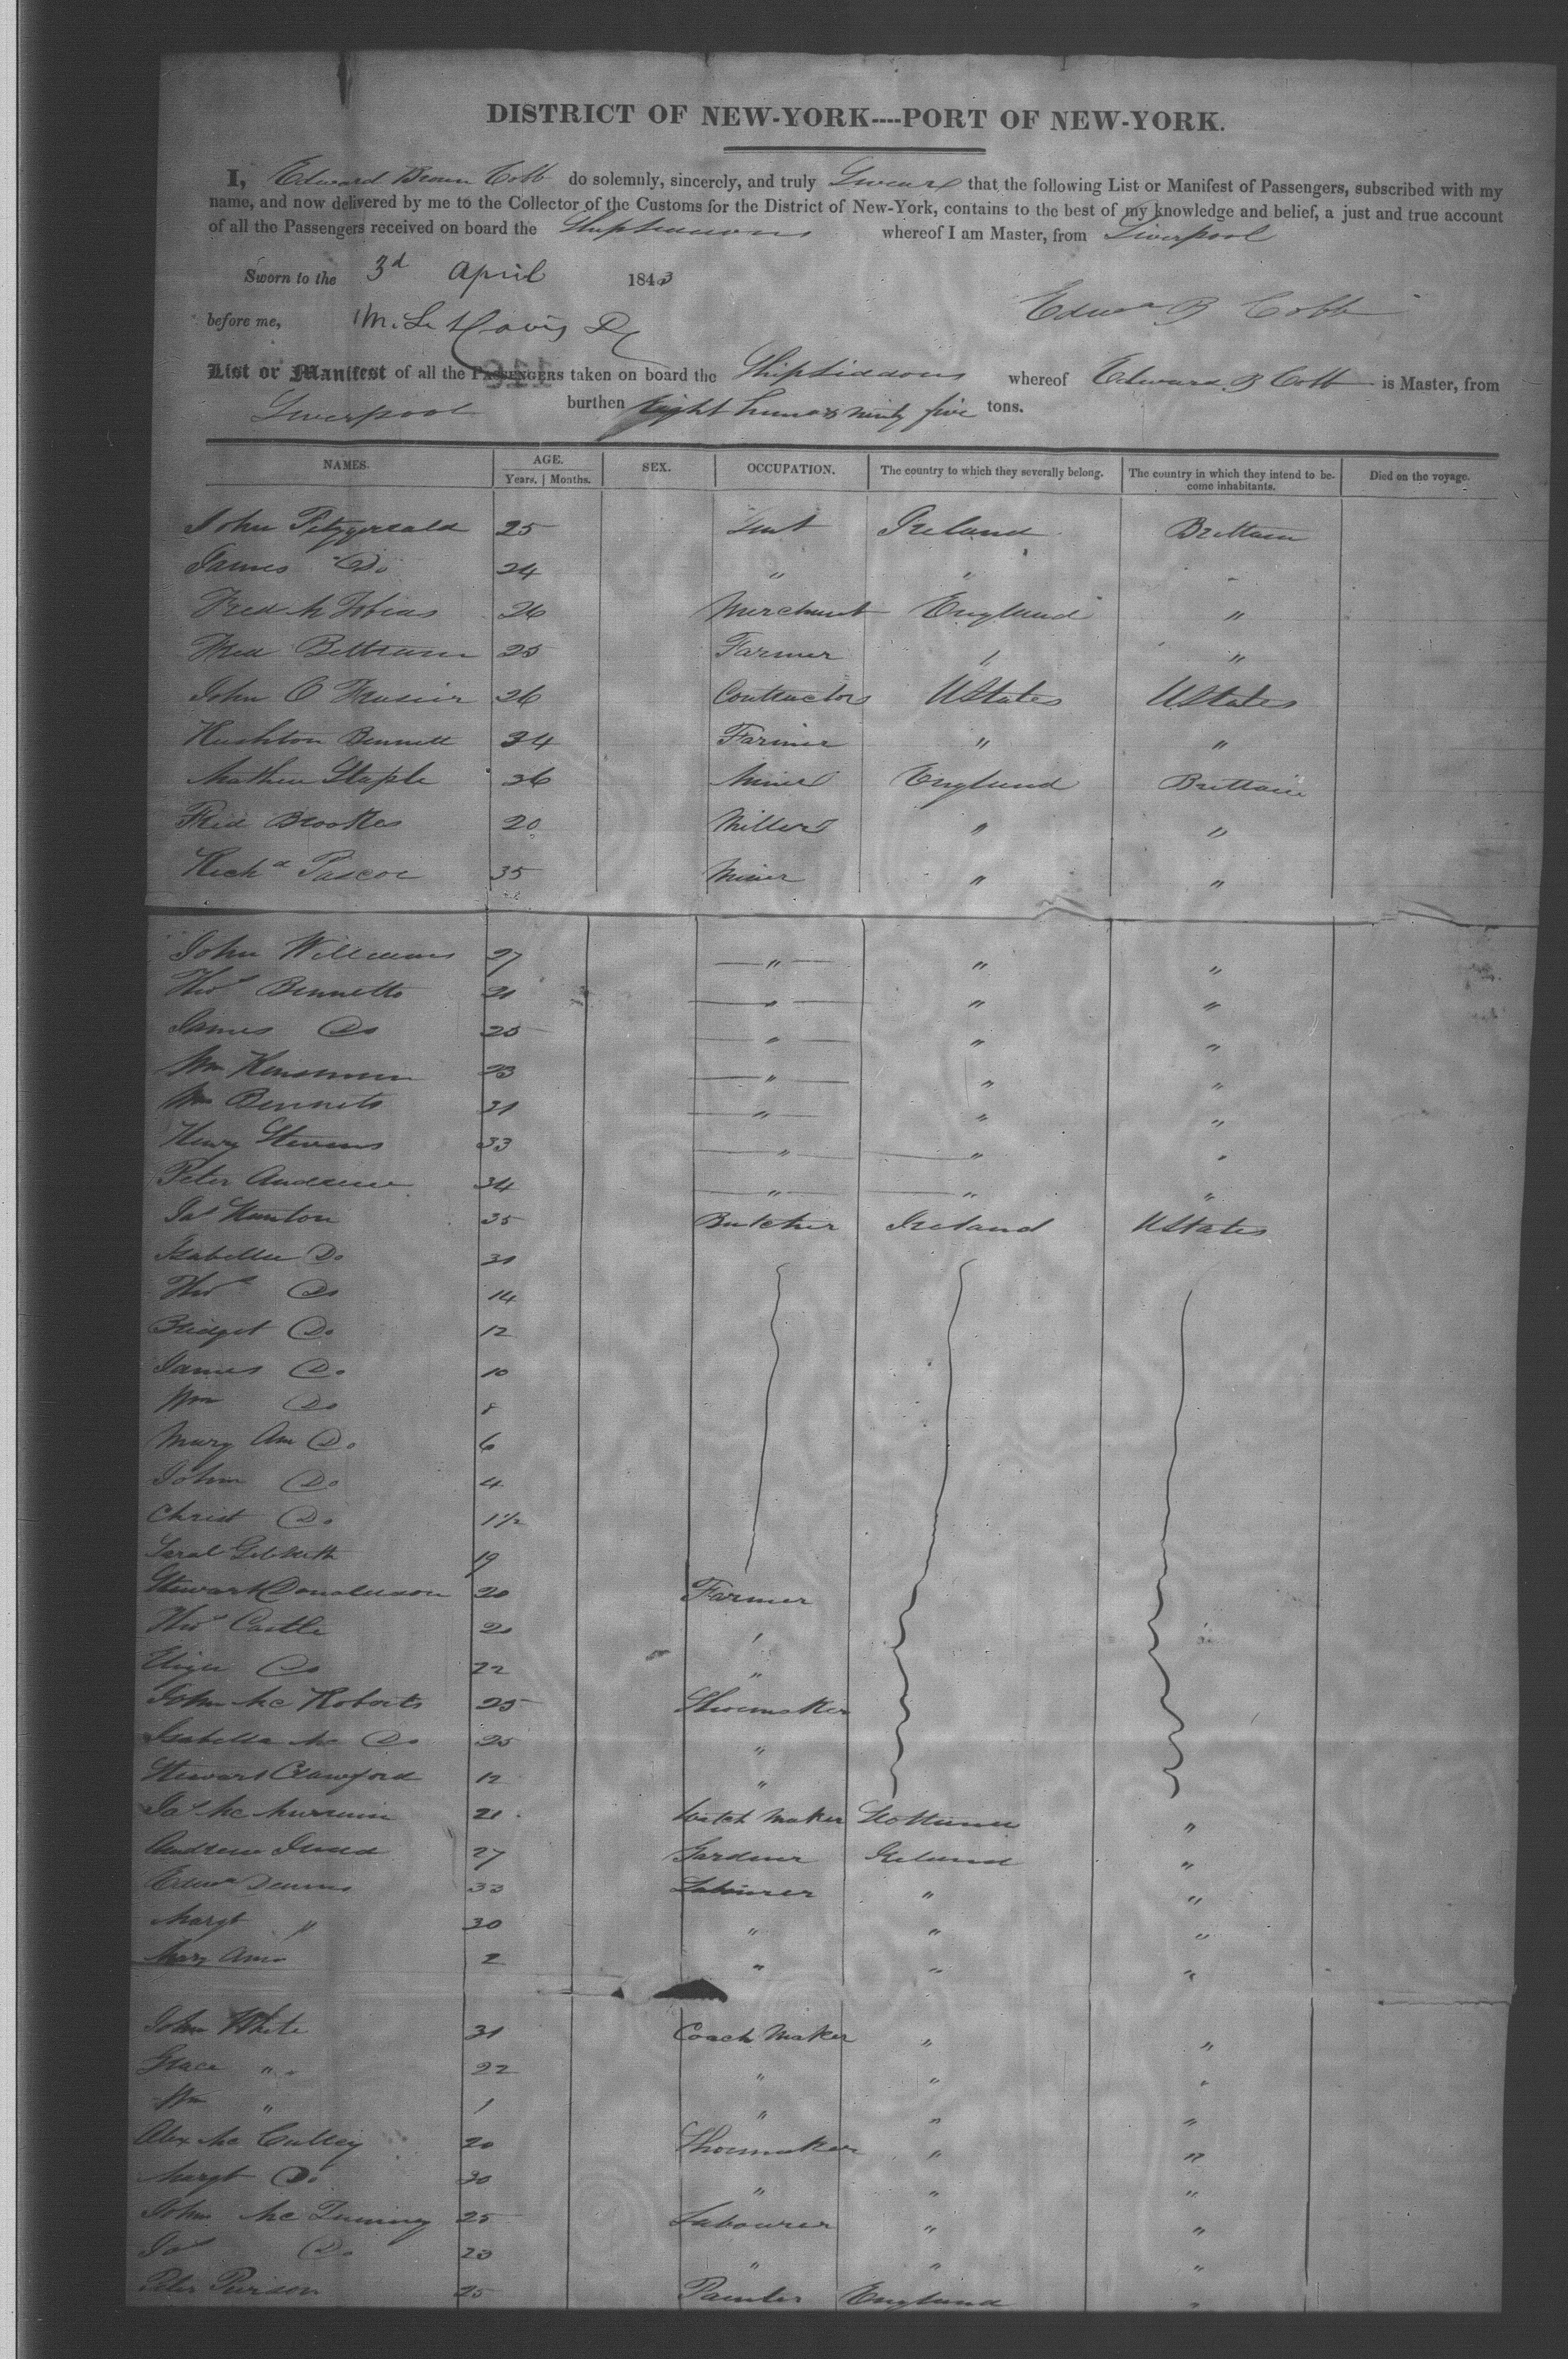 DISTRICT OF NEW-YORK----PORT OF NEW-YORK.
I, Edward Brown Cobb do solemnly, sincerely, and truly Swear that the following List or Manifest of Passengers, subscribed with my
name, and now delivered by me to the Collector of the Customs for the District of New-York, contains to the best of my knowledge and belief, a just and true account
of all the Passengers received on board the Ship Siddons whereof I am Master, from Liverpool
Sworn to the 3d April 1843
before me, Edwd B Cobb
List or Manifest of all the PASSENGERS taken on board the Ship Siddons whereof Edward B Cobb is Master, from
Liverpool burthen Eight hund & ninty five tons.
NAMES. AGE. SEX. OCCUPATION. The country to which they severally belong. The country in which they intend to be- Died on the voyage.
Years. Months. come inhabitants.
John Fitzgerald 25 Gent Ireland Brittain
James Do 24 " " "
Fred M Tobias 26 Merchant England "
Fred Beltram 25 Farmer " "
John O Frasier 26 Contractor UStates UStates
Rushton Bennett 34 Farmer " "
Mathew Staple 36 Miner England Brittain
Fred Brookes 20 Miller " "
Richd Pascoe 35 Miner " "
John Williams 27 " " "
Thos Bennetts 21 " " "
James Do 25 " " "
Wm Kinsman 23 " " "
Wm Bennets 31 " " "
Henry Stevens 33 " " "
Peter Andrew 34 " " "
Jas Hanton 35 Butcher Ireland UStates
Isabella Do 31
Thos Do 14
Bridget Do 12
James Do 10
Wm Do 8
Mary Ann Do 6
John Do 4
Christ Do 1 1/2
Sarah 19
Stewart Donaldson 20 Farmer
Thos Castle 20 "
Do 22 "
John Mc Roberts 25 Shoemaker
Isabella Mc Do 25 "
Stewart Crawford 12 "
Jas Mc 21 Watch Maker "
Andrew 27 Gardner Ireland "
Edwd Dennis 33 Labourer " "
Margt " 30 " " "
Mary Ann 2 " " "
John White 31 Coach Maker " "
Grace " 22 " " "
Wm " 1 " " "
Alex Mc Culley 20 Shoemaker " "
Margt Do 30 " " "
John Mc 25 Labourer " "
Jas Do 23 " " "
Peter 25 Painter England "